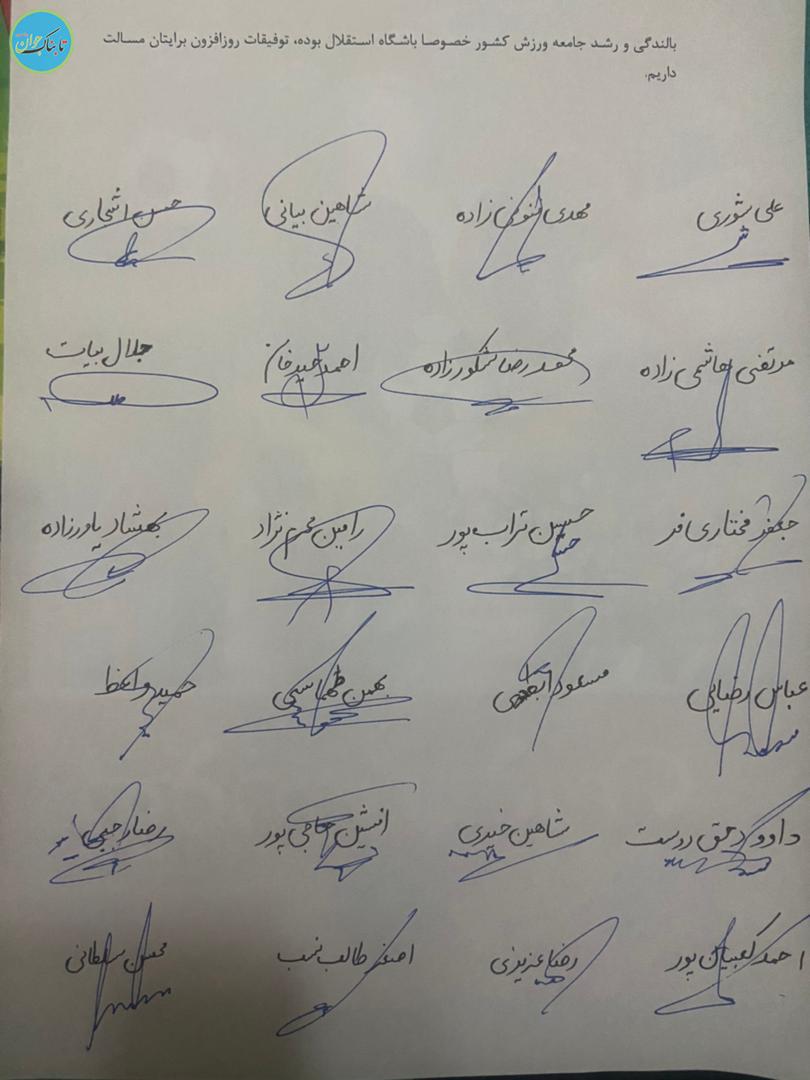 تابناک جوان
بالندگی و رشد جامعه ورزش کشور خصوصا باشگاه استقلال بوده، توفیقات روزافزون برایتان مسالت
داریم.
علی شوری مهدی فنونی زاده شاهین بیانی حسن اشجاری
مرتضی هاشمی زاده محمدرضا شکورزاده احمد جلال بیات
جعفر مختاری فر حسین تراب پور رامین محرم نژاد بهشاد یاورزاده
عباس رضایی مسعود بهمن طهماسبی حمید واعظ
داوود حق دوست شاهین خیری افشین حاجی پور رضا رجبی
احمد کعبیان پور رضا عزیزی اصغر طالب نسب محسن سلطانی